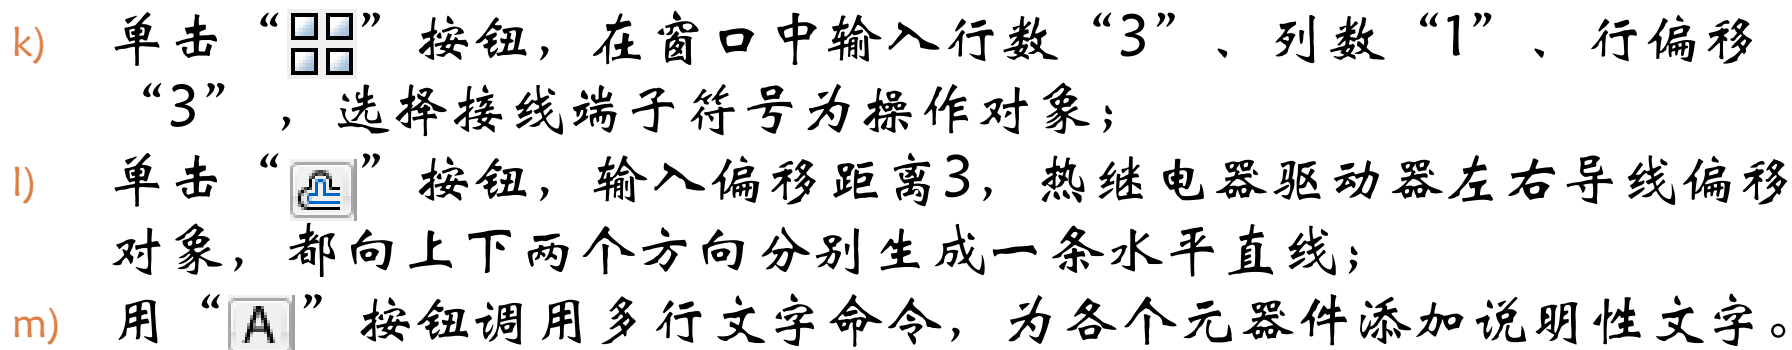 k) 单击“”按钮，在窗口中输入行数“3”、列数“1”、行偏移
“3”，选择接线端子符号为操作对象；
l) 单击“”按钮，输入偏移距离3，热继电器驱动器左右导线偏移
对象，都向上下两个方向分别生成一条水平直线；
m) 用“A”按钮调用多行文字命令，为各个元器件添加说明性文字。